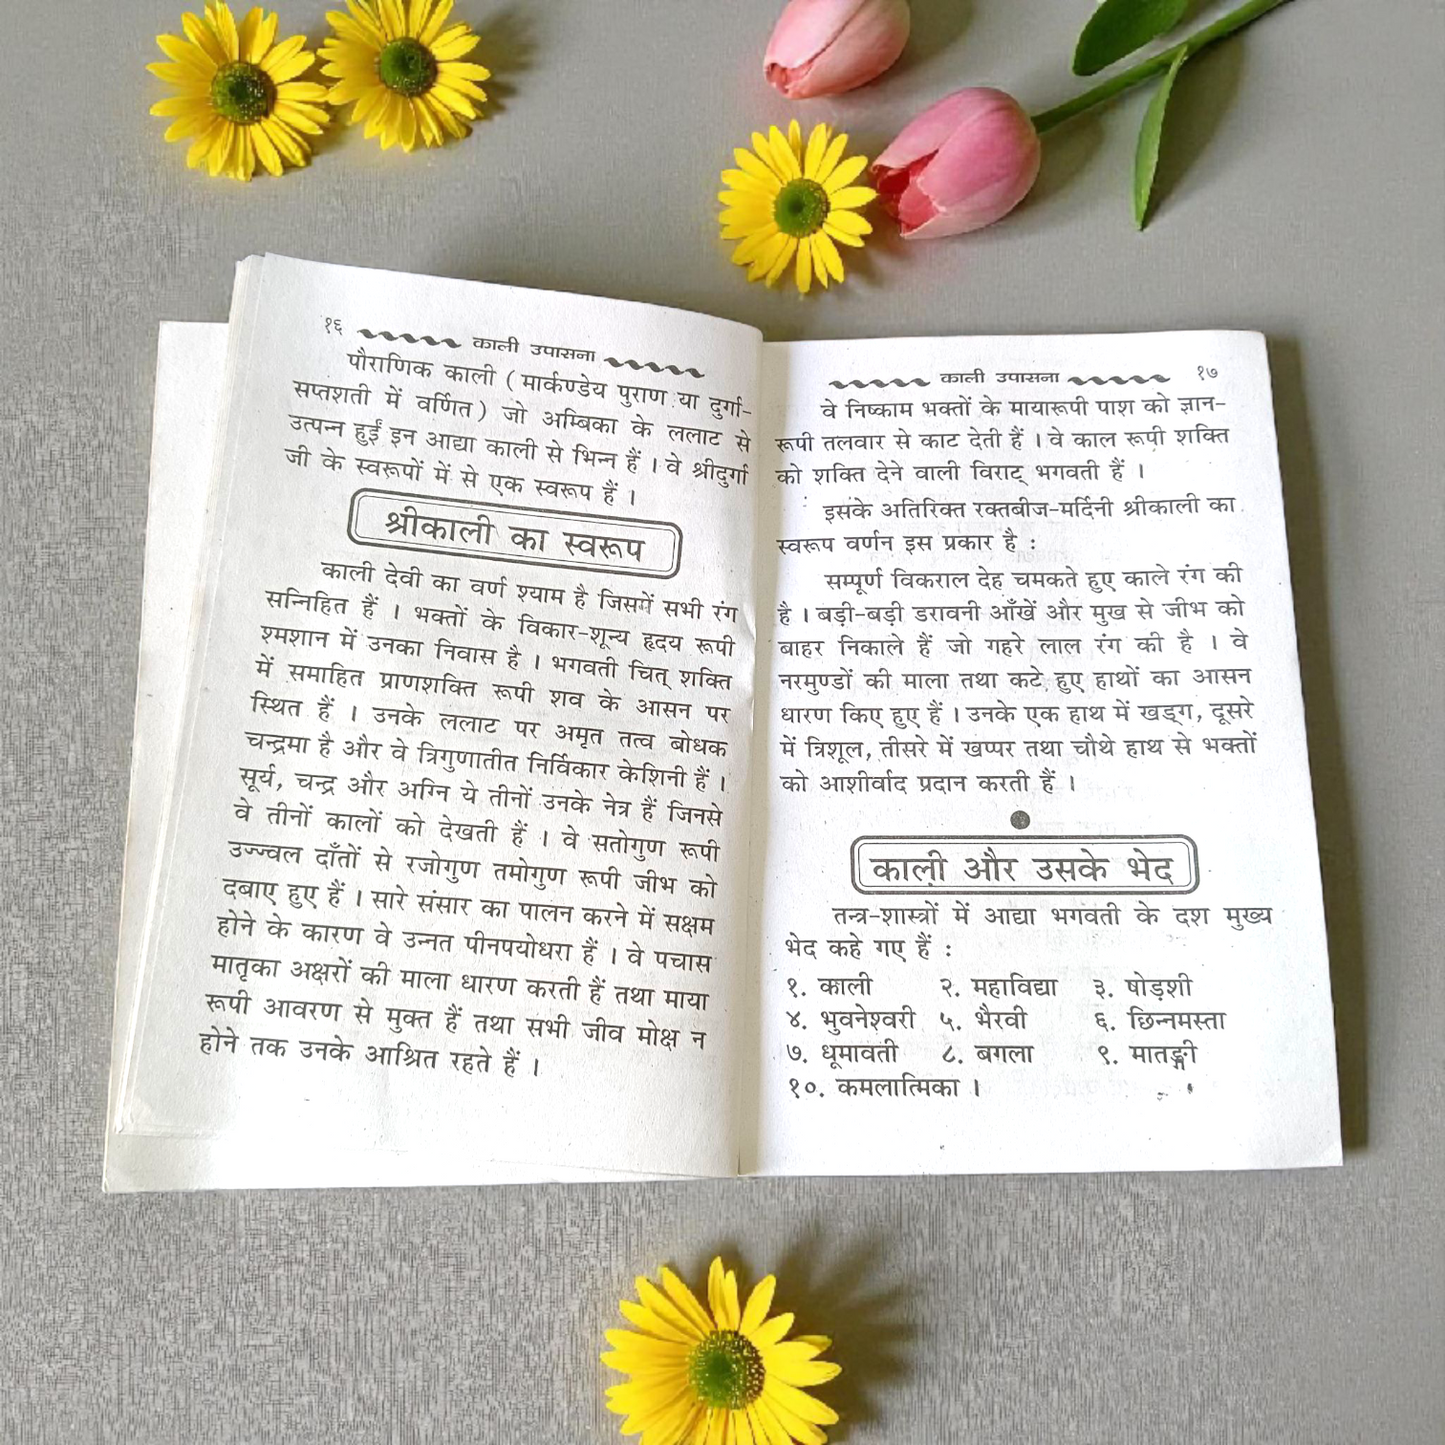 १६ काली उपासना
पौराणिक काली ( मार्कण्डेय पुराण या दुर्गा-
सप्तशती में वर्णित ) जो अम्बिका के ललाट से
उत्पन्न हुईं इन आद्या काली से भिन्न हैं । वे श्रीदुर्गा
जी के स्वरूपों में से एक स्वरूप हैं ।
श्रीकाली का स्वरूप
काली देवी का वर्ण श्याम है जिसमें सभी रंग
सन्निहित हैं । भक्तों के विकार-शून्य हृदय रूपी
श्मशान में उनका निवास है । भगवती चित् शक्ति
में समाहित प्राणशक्ति रूपी शव के आसन पर
स्थित हैं । उनके ललाट पर अमृत तत्व बोधक
चन्द्रमा है और वे त्रिगुणातीत निर्विकार केशिनी हैं ।
सूर्य, चन्द्र और अग्नि ये तीनों उनके नेत्र हैं जिनसे
वे तीनों कालों को देखती हैं । वे सतोगुण रूपी
उज्ज्वल दाँतों से रजोगुण तमोगुण रूपी जीभ को
दबाए हुए हैं । सारे संसार का पालन करने में सक्षम
होने के कारण वे उन्नत पीनपयोधरा हैं । वे पचास
मातृका अक्षरों की माला धारण करती हैं तथा माया
रूपी आवरण से मुक्त हैं तथा सभी जीव मोक्ष न
होने तक उनके आश्रित रहते हैं ।
काली उपासना १७
वे निष्काम भक्तों के मायारूपी पाश को ज्ञान-
रूपी तलवार से काट देती हैं । वे काल रूपी शक्ति
को शक्ति देने वाली विराट् भगवती हैं ।
इसके अतिरिक्त रक्तबीज-मर्दिनी श्रीकाली का
स्वरूप वर्णन इस प्रकार है :
सम्पूर्ण विकराल देह चमकते हुए काले रंग की
है । बड़ी-बड़ी डरावनी आँखें और मुख से जीभ को
बाहर निकाले हैं जो गहरे लाल रंग की है । वे
नरमुण्डों की माला तथा कटे हुए हाथों का आसन
धारण किए हुए हैं । उनके एक हाथ में खड्ग, दूसरे
में त्रिशूल, तीसरे में खप्पर तथा चौथे हाथ से भक्तों
को आशीर्वाद प्रदान करती हैं ।
काली और उसके भेद
तन्त्र-शास्त्रों में आद्या भगवती के दश मुख्य
भेद कहे गए हैं :
१. काली २. महाविद्या ३. षोड़शी
४. भुवनेश्वरी ५. भैरवी ६. छिन्नमस्ता
७. धूमावती ८. बगला ९. मातङ्गी
१०. कमलात्मिका ।